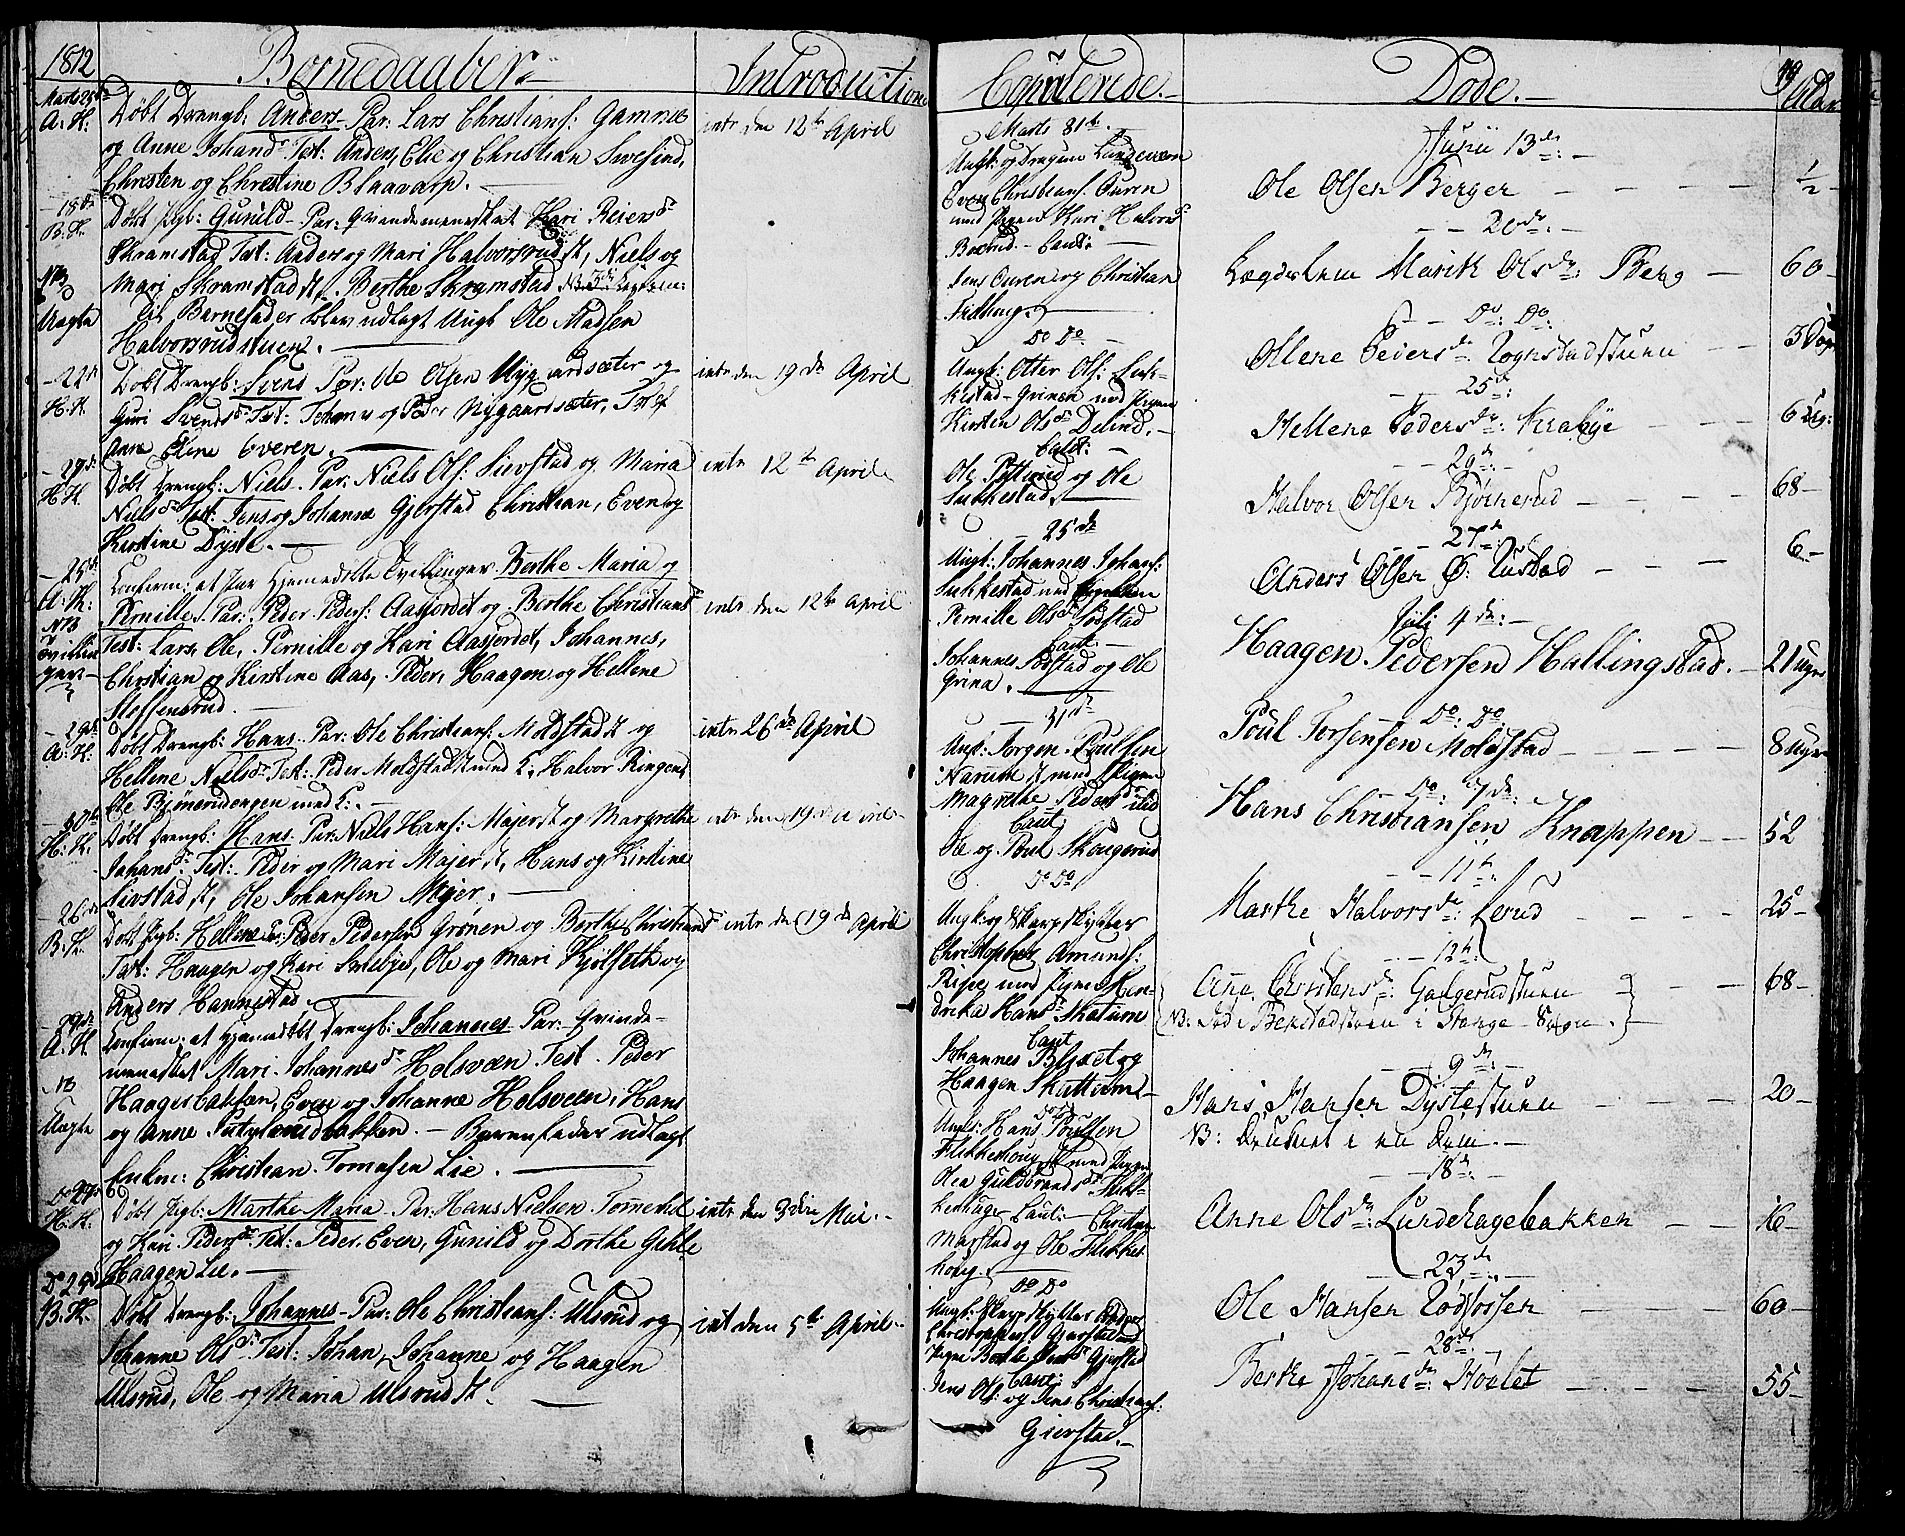 1812
Børnedaaber.
Introductione
Copulerede.
Døde.
49
Alder
Marts 29de
A: K:
Døbt Drengb: Anders. Par: Lars Christians: Gamnes
og Anne Johansd. Test: Anders, Elie og Christian Svesind,
Christen og Christine Blaavarp.
intr den 12te April
18de
B: K:
Døbt Pigb: Gunild. Par: Qvindemennesket Kari Reiersd
Skramstad Test: Anders og Mari Halvorsrud st, Niels og
NB
Mari Skramstad st, Berthe Skramstad
Uægte
til Barnefader blev udlagt Ungk Ole Madsen
Halvorsrudstuen.
22d
H: K.
Døbt Drengb: Svend Par: Ole Olsen Nygaardsæter og
Guri Svendsd Test: Johan og Peder Nygaardsæter,
Anne Elene Everen.
intr den 19de April
29d:
H: K.
Døbt Drengb: Niels. Par: Niels Ols: Sivstad og Maria
Nielsd Test: Jens og Johanne Gjerstad Christian, Even og
Kirstine Dyste.
intr 12te April
25d
A: K:
NB
Tvillin
ger
Confirm: et Par Hjemmedøbte Tvillinger Berthe Maria og
Pernille. Par: Peder Peders: Aasjordet og Berthe Christiansd
Test: Lars, Ole, Pernille og Kari Aasjordet, Johannes,
Christian og Kirstine Aas, Peder, Haagen og Hellene
Steffensrud.
intr den 12te April
29d
A: K.
Døbt Drengb: Hans. Par: Ole Christians: Moldstad st og
Hellene Nielsd Test: Peder Moldstad st med K, Halvor Ringen,
Ole Bjørnerudengen med K:
intr 26de April
30te
H: K.
Døbt Drengb: Hans. Par: Niels Hans: Majer st og Margrethe
Johansd Test: Peder og Mari Majer st, Hans og Kirstine
Sivstad st, Ole Johansen Majer.
intr den 19de April
26de
B: K.
Døbt Pigb: Hellene Par: Peder Pedersen Grønen og Berthe Christiansd
Test: Haagen og Kari Smebye, Ole og Mari Kjølseth og
Anders Hannestad.
intr den 19de April
29de
A: K
NB
Uægte
Confirm: et Hjemmedøbt Drengb: Johannes. Par: Qvinde-
mennesket Mari Johannesd Holsveen Test. Peder
Haagesbakken, Even og Johanne Holsveen, Hans
og Anne bakken. Barnefader udlagt
Enkem: Christian Tomasen Lie.
Do 27de
H: K.
Døbt Pigb: Marthe Maria. Par: Hans Nielsen Tømerhol
og Kari Pedersd. Test: Peder, Even, Gunild og Dorthe Gehle
Haagen Lie.
intr den 3die Mai.
Do 29d
B: K.
Døbt Drengb: Johannes. Par: Ole Christians: Ulsrud og
Johanne Olsd: Test: Johan, Johanne og Haagen
Ulsrud, Ole og Maria Ulsrud st.
int den 5te April.
Marts 31te
Ungk: og Dragun
Even Christians: Curen
med Pigen Kari Halvorsd
Caut:
Jens Curen og Christian
Do Do
Ungk: Otter Ols: Luk-
kestad-Grinen med Pigen
Kirsten Olsd Delind.
Caut:
Ole Pytterud og Ole
Lukkestad.
25de
Ungk: Johannes Johans:
Lukkestad med
Pernille Olsd Sodstad
Caut:
Johannes Sodstad og Ole
Grina.
31te
Ungk: Jorgen Poulsen
Narum st med Pigen
Magrethe Pedersd
Caut
Ole og Poul Skougerud
Do Do
Ungk: og Skarpskytter
Christopher Amunds:
Ripe med Pigen Hen-
drika Hansd Skatum
Caut
Johannes Blixet og
Haagen Skattum
Do
Ungk: Hans Poulsen
Flekkehoug st med Pigen
Olea Guldbrandsd Flek-
kehouger Caut: Christian
Marstad og Ole Flekke
houg.
Do Do
Ungk: Skarpskytter
Christophers: Gjerstad med
Pigen Berthe Gjerstad
Caut:
Jens Ols: og Jens Christians:
Gierstad.
Junii 13de
Ole Olsen Berger ½
20de
Lægdslem Marik Olsdr: Berg 60
Do: Do:
Ollene Pedersdr: Tognstadstuen 3 Dage
25de
Hellene Pedersdr: Krabye 6
29de
Halvor Olsen Bjørnerud 68
27de
Anders Olsen Ø: Rustad 6
Juli 4de:
Haagen Pedersen Hallingstad. 21 uger
Do: Do:
Poul Torsensen Moldstad 8 uger
Do: 7de:
Hans Christiansen Knappen 52
11te:
Marthe Halvorsdr: Lerud 25
12te:
Ane Christensdr: Galgerudstuen 68
NB: Død i Bekstadstuen i Stange-Sogn.
9de
Hans Hansen Dystestuen 20
NB: Druknet i en Dam.
18de
Anne Olsdr: Lundehagebakken 16
23de
Ole Hansen Rødfossen 60
28de
Berthe Johansdr: Hoelet 55